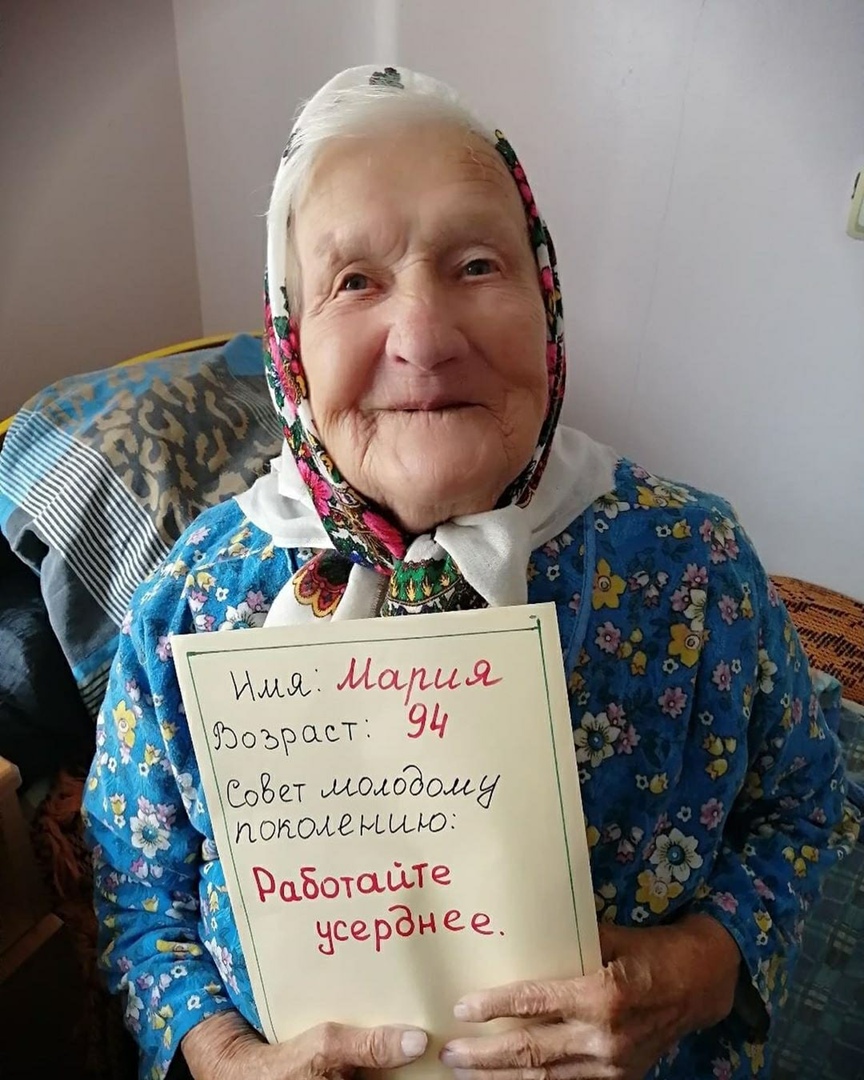 Имя: Мария
Возраст: 94
Совет молодому
поколению:
Работайте
усерднее.